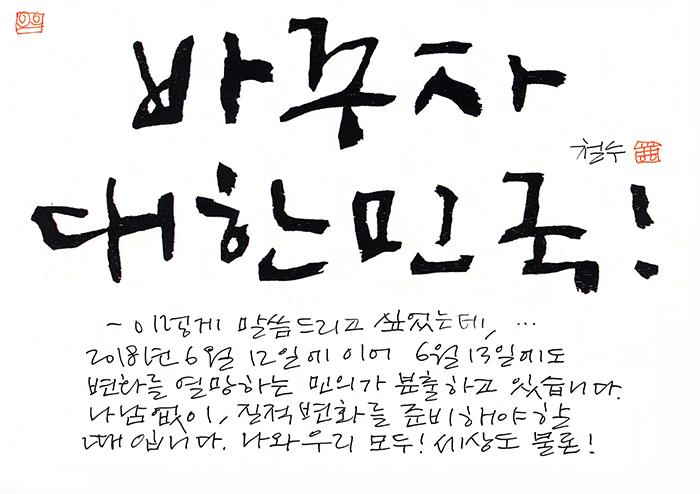 바꾸자
철수
대한민국!
~ 이렇게 말씀드리고 싶었는데, ...
2018년 6월 12일에 이어 6월 13일에도
변화를 열망하는 민의가 분출하고 있습니다.
나남없이, 질적변화를 준비해야할
때입니다. 나와 우리 모두! 세상도 물론!